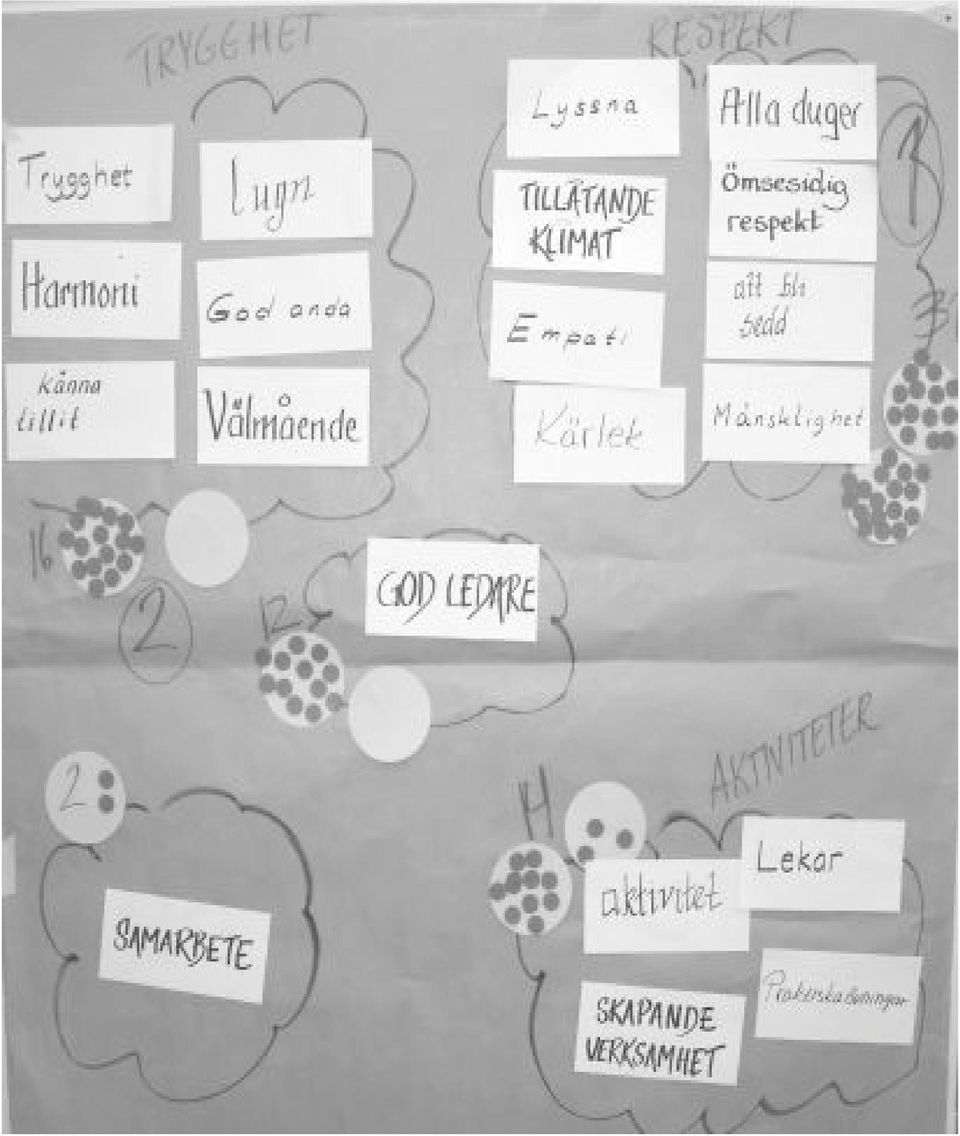 TRYGGHET
Trygghet
lugn
Harmoni
God anda
känna
tillit
Välmående
16
2
RESPEKT
Lyssna
Alla duger
1
TILLÅTANDE
KLIMAT
Ömsesidig
respekt
Empati
att bli
sedd
Kärlek
Mänsklighet
GOD LEDARE
12
2
SAMARBETE
AKTIVITETER
14
aktivitet
Lekar
SKAPANDE
VERKSAMHET